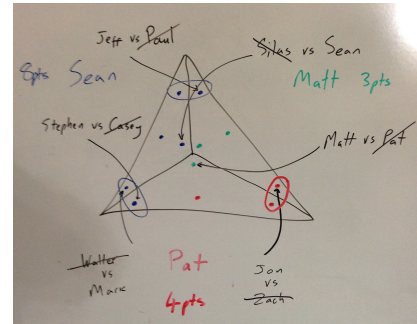 Jeff vs Paul
Silas vs Sean
8pts Sean
Matt 3pts
Stephen vs Casey
Matt vs Pat
Walter
vs
Mark
Pat
4pts
Jon
vs
Zach